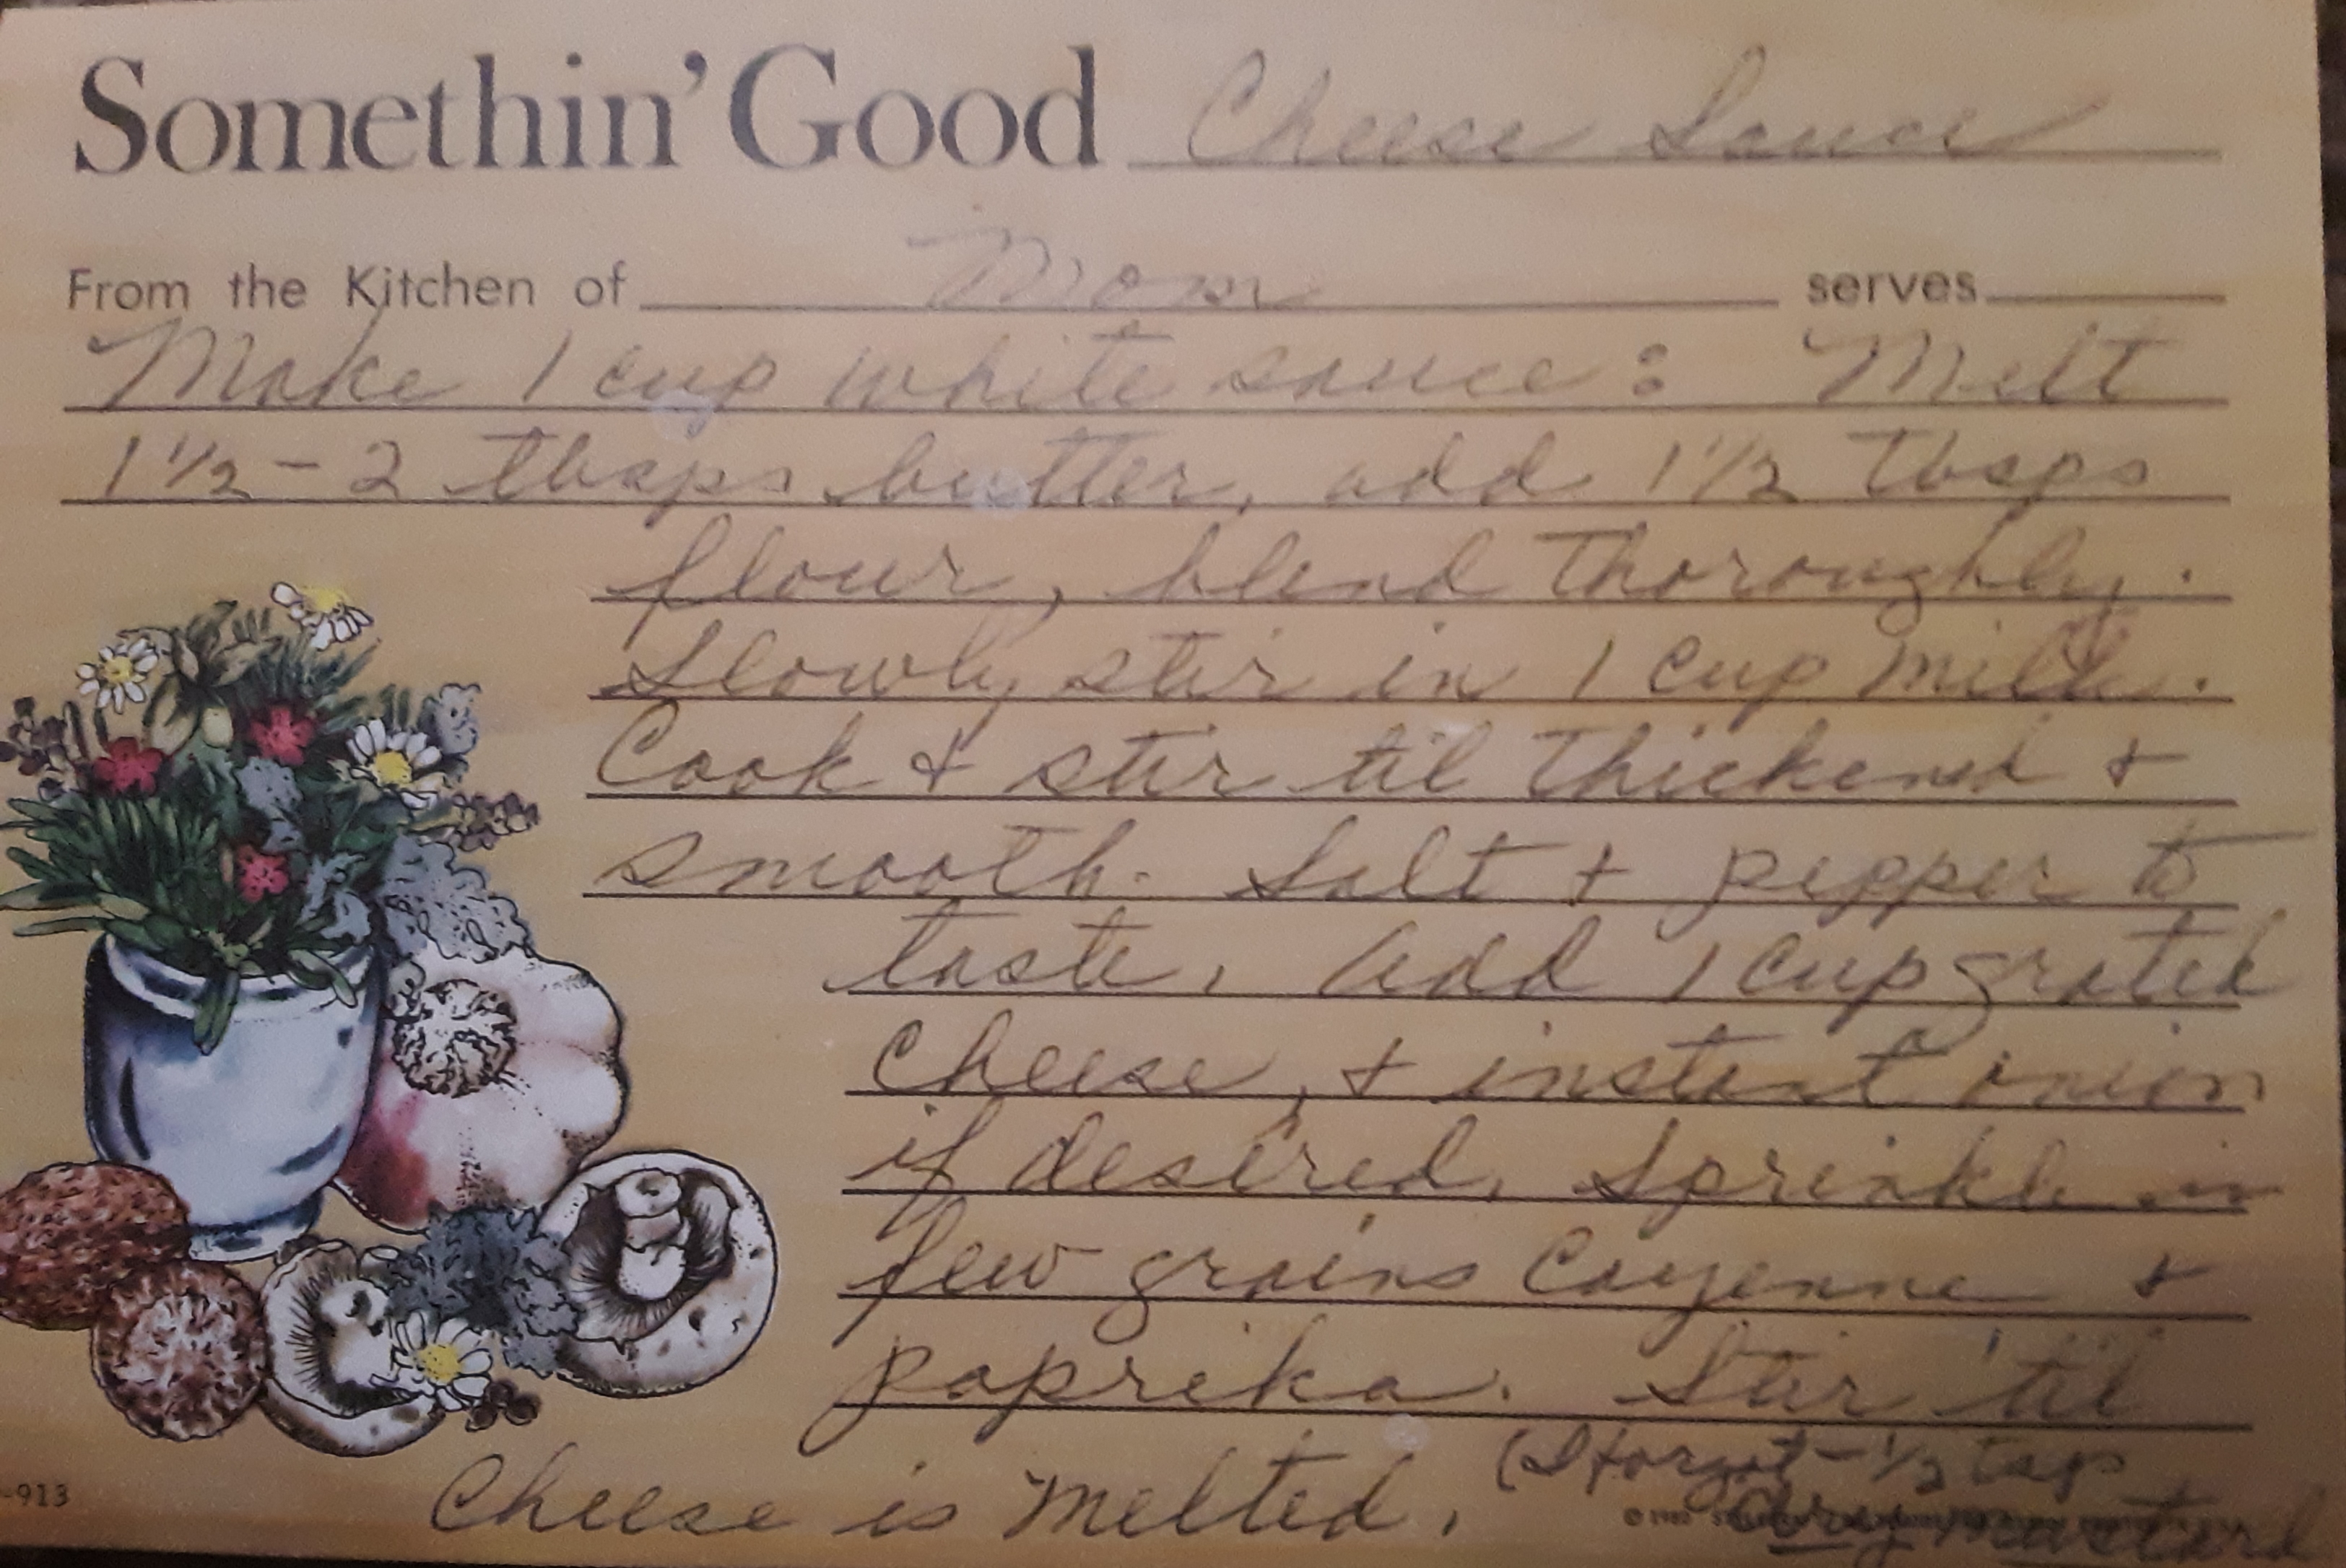 Somethin' Good Cheese Sauce
From the Kitchen of Mom serves
Make 1 cup white sauce: Melt
1 1/2 - 2 tbsps butter, add 1 1/2 Tbsps
flour, blend thoroughly.
Slowly stir in 1 cup milk.
Cook & stir til thickend &
smooth. Salt & pepper to
taste. Add 1 cup grated
cheese, & instant onion
if desired. Sprinkle in
few grains Cayenne &
paprika. Stir 'til
Cheese is Melted. (I forgot - 1/2 tsp
dry mustard
-913
© 19